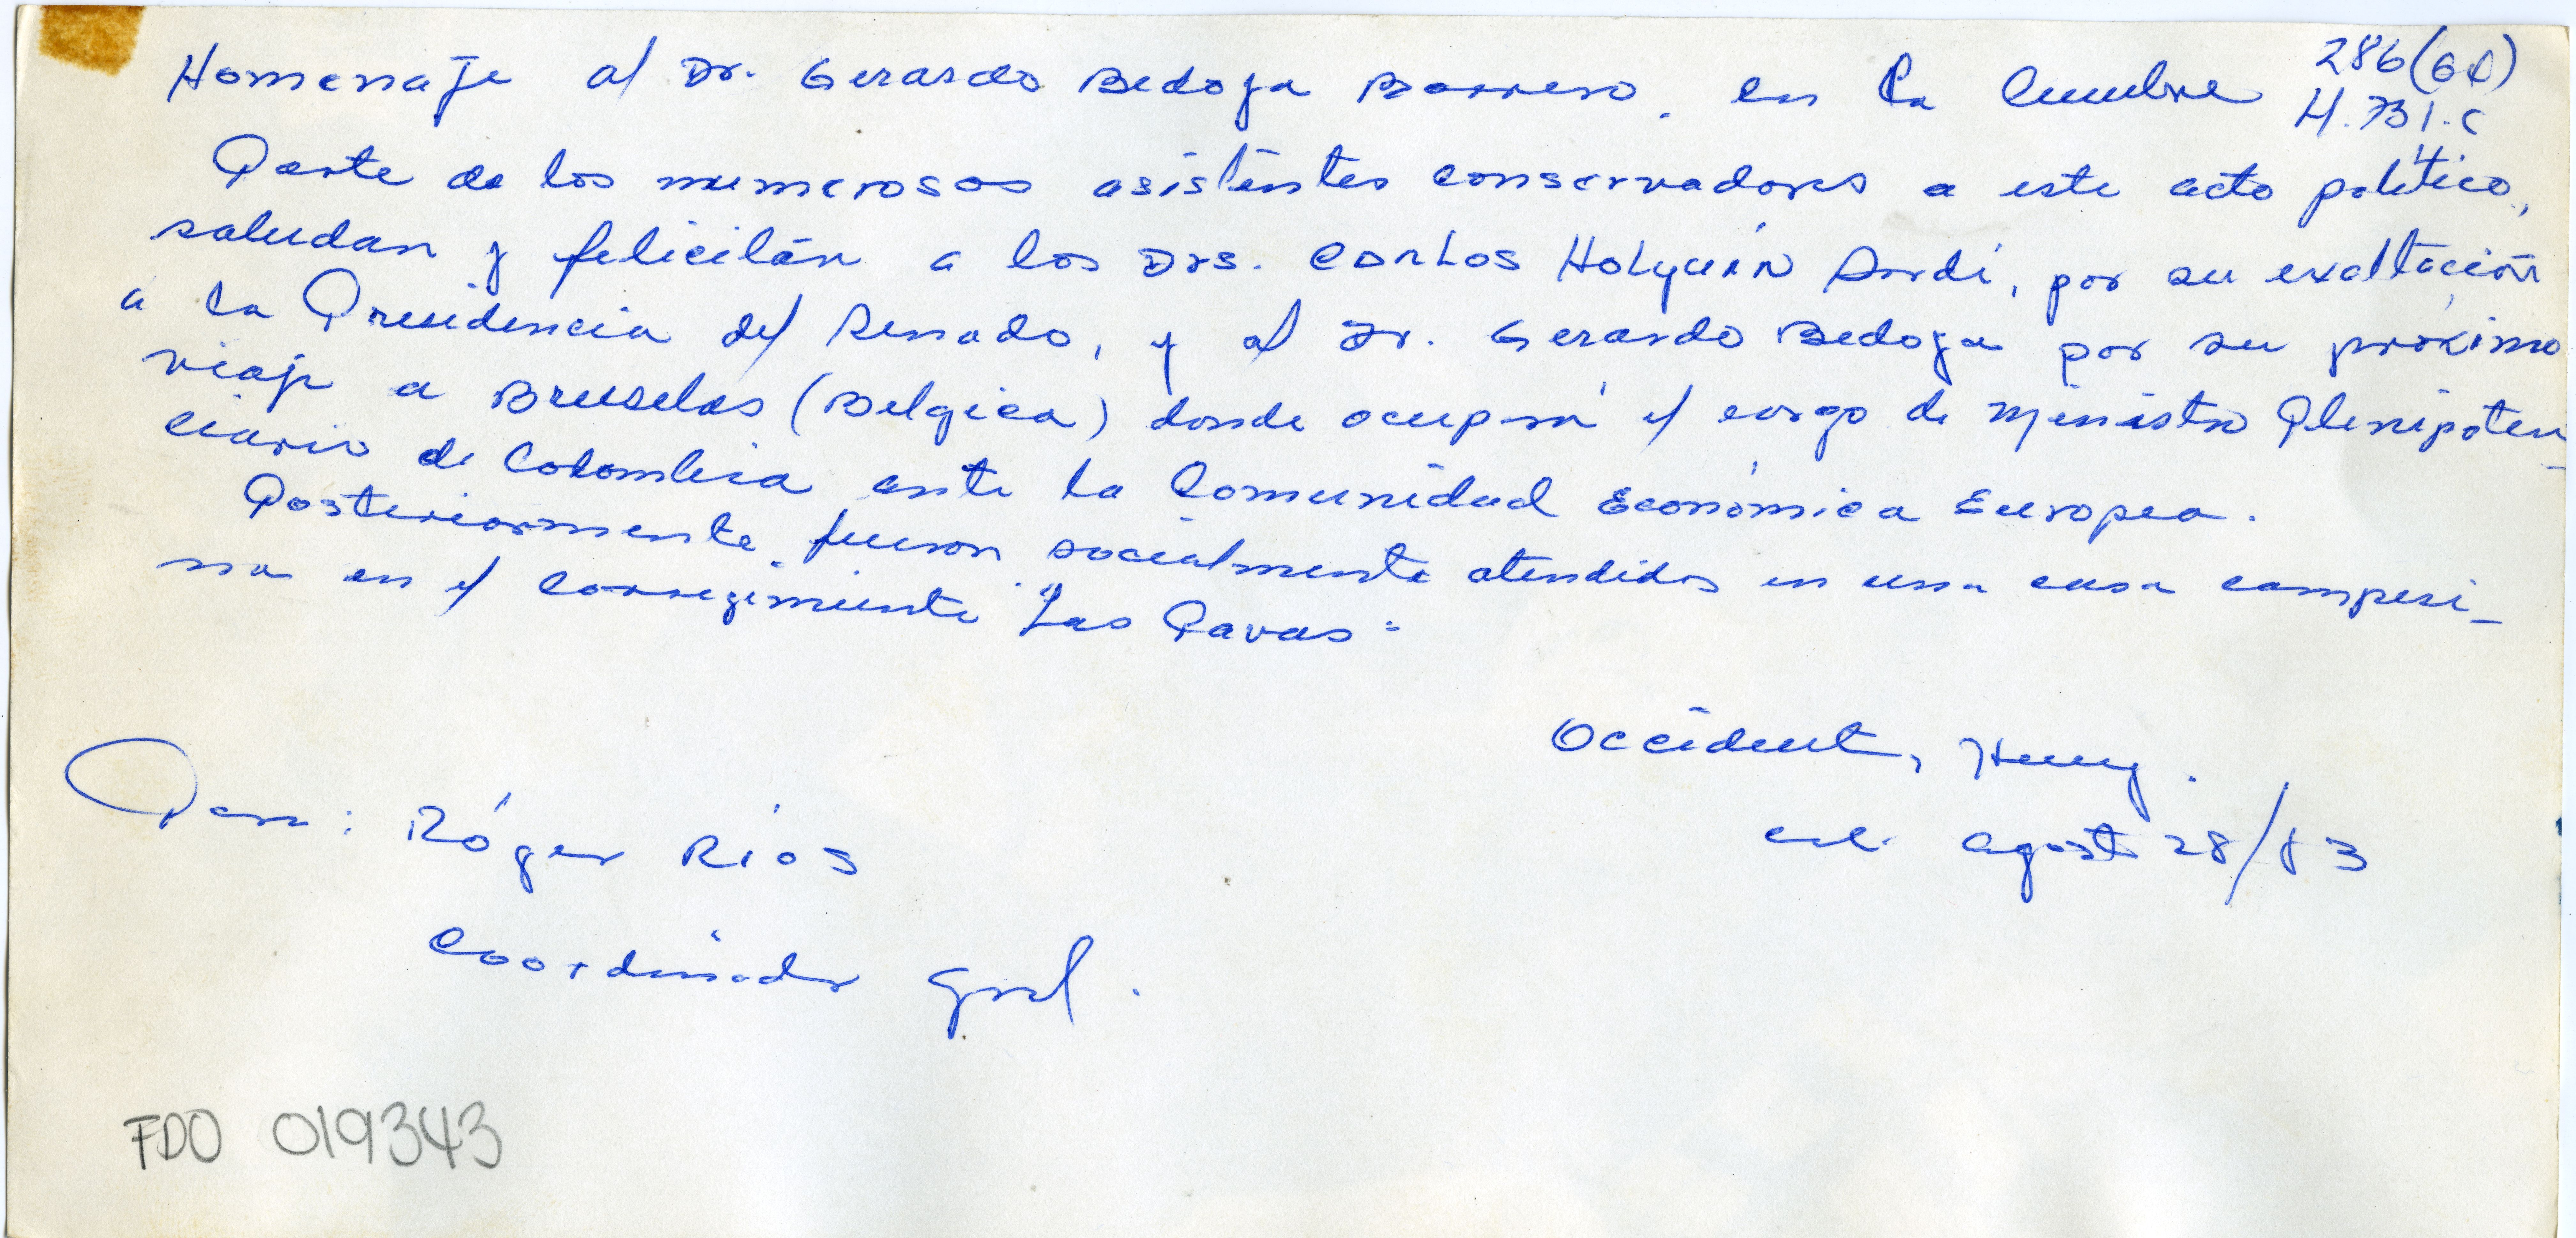 Homenaje al Dr. Gerardo Bedoya Borrero, en la Cumbre
286 (6 )
H. 731. C
Parte de los numerosos asistentes conservadores a este acto político,
saludan y felicitán a los Drs. Carlos Holguín Sardi, por su exaltación
a la Presidencia del Senado, y al Dr. Gerardo Bedoya por su próximo
viaje a Bruselas (Belgica) donde ocupará el cargo de Ministro Plenipoten
ciario de Colombia ante la Comunidad Económica Europea.
Posteriormente fueron socialmente atendidos en una casa campesi-
na en el corregimiento "Las Pavas"
Occidente, Henry.
Cali. agosto 28/83
Para: Róger Ríos
Coordinador Gral.
FDO 019343